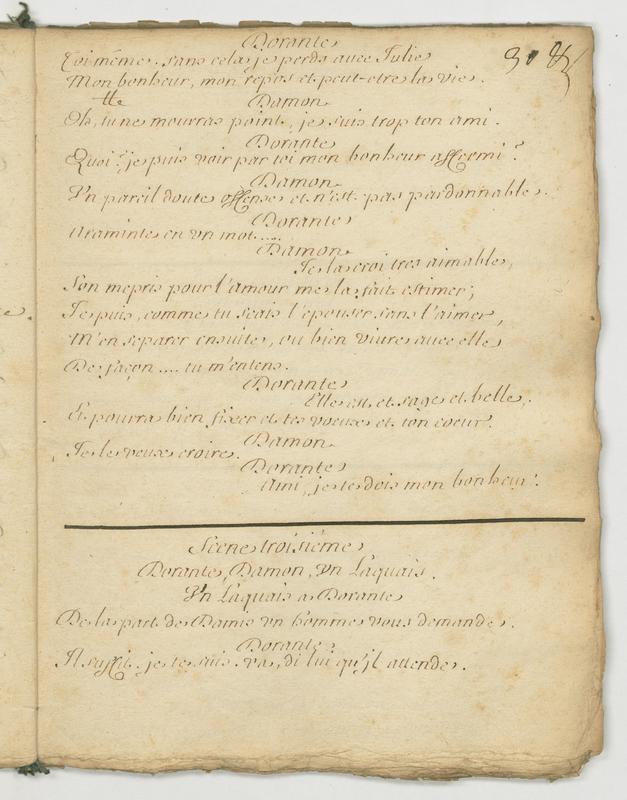 Dorante
Toi même. sans cela, je perds avec Julie
Mon bonheur, mon repos et peut-etre la vie.
Damon
Oh, tu ne mourras point, je suis trop ton ami.
Dorante
Quoi? je puis voir par toi mon bonheur affermi?
Damon
Un pareil doute offense et n'est pas pardonnable.
Dorante
Araminte en un mot....
Damon
Je la croi tres aimable,
Son mepris pour l'amour me la fait estimer;
Je puis, comme tu scais l'epouser sans l'aimer,
M'en separer ensuite, ou bien vivre avec elle
De façon .... tu m'entens.
Dorante
Elle est et sage et belle,
Et pourra bien fixer et tes voeux et ton coeur.
Damon
Je le veux croire.
Dorante
Ami, je te dois mon bonheur.
Scene troisième
Dorante, Damon, Un Laquais.
Un Laquais a Dorante
De la part de Damis un homme vous demande.
Dorante
Il suffit. je te suis. va, di lui qu'il attende.